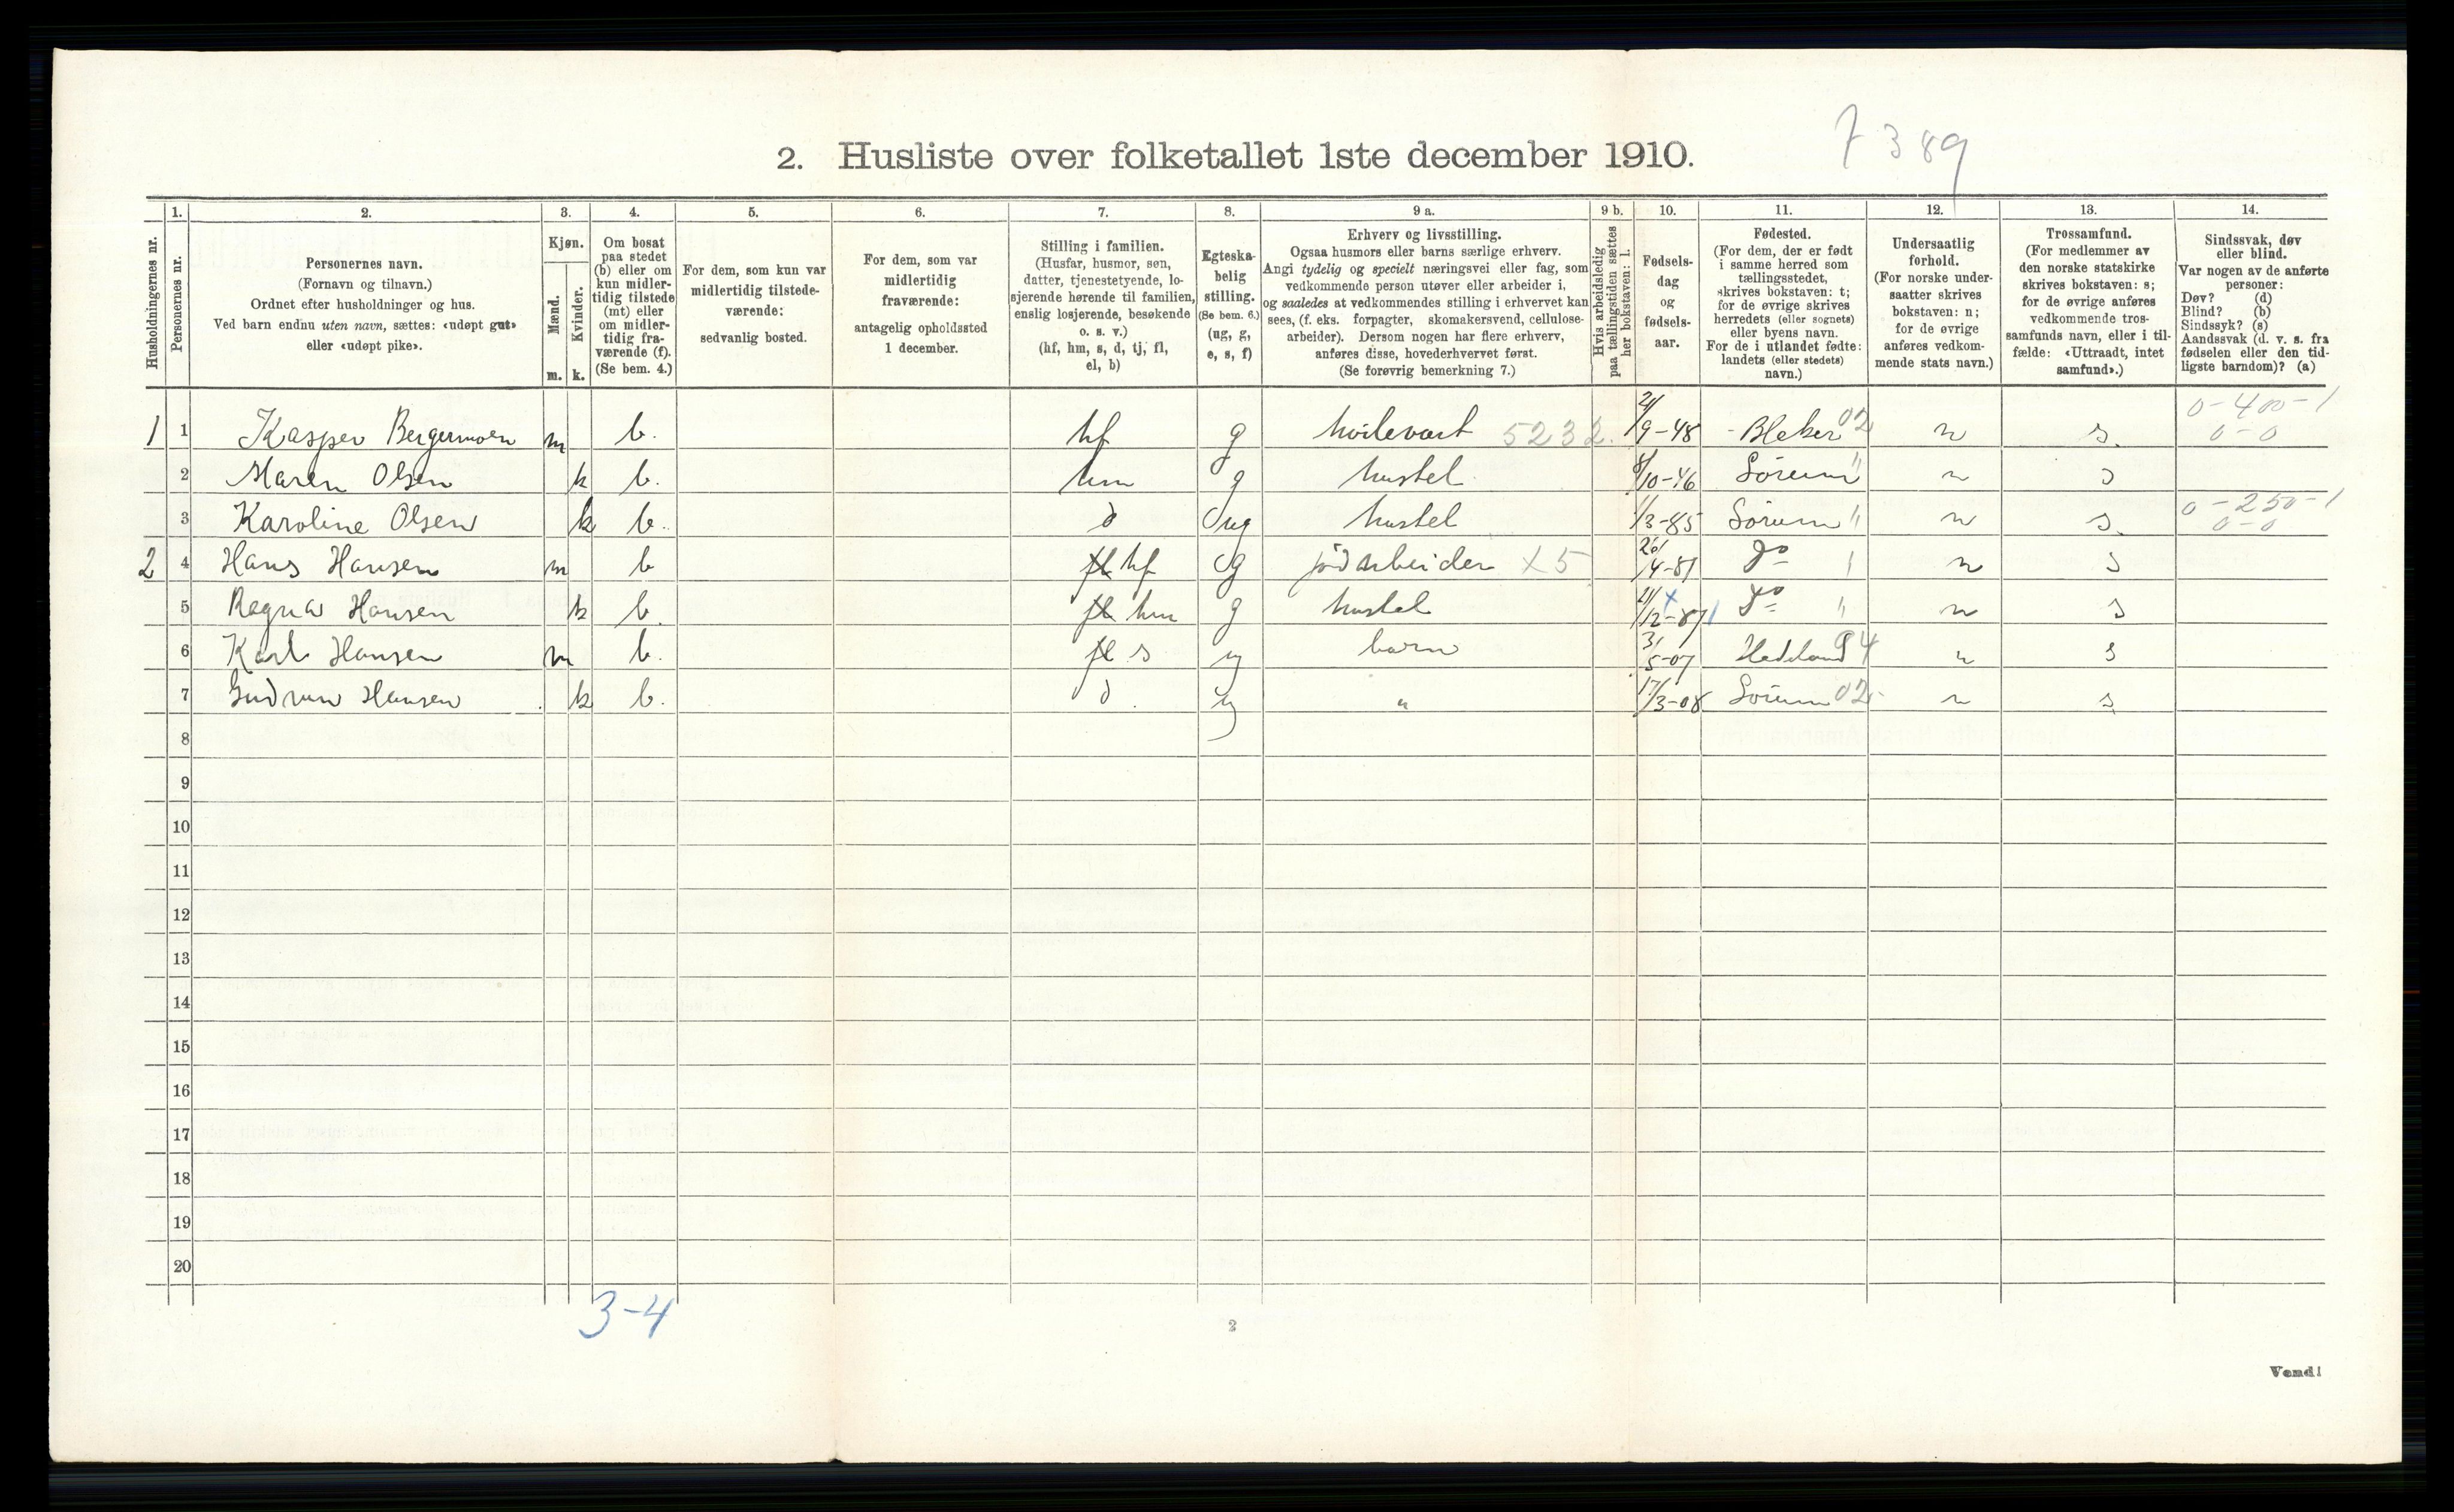 7389
2. Husliste over folketallet 1ste december 1910.
Husholdningernes nr.
1.
Personernes nr.
2.
Personernes navn.
(Fornavn og tilnavn.)
Ordnet efter husholdninger og hus.
Ved barn endnu uten navn, sættes: «udøpt gut»
eller «udøpt pike».
3.
Kjøn.
Mænd.
Kvinder.
m. k.
4.
Om bosat
paa stedet
(b) eller om
kun midler-
tidig tilstede
(mt) eller
om midler-
tidig fra-
værende (f).
(Se bem. 4.)
5.
For dem, som kun var
midlertidig tilstede-
værende:
sedvanlig bosted.
6.
For dem, som var
midlertidig
fraværende:
antagelig opholdssted
1 december.
7.
Stilling i familien.
(Husfar, husmor, søn,
datter, tjenestetyende, lo-
sjerende hørende til familien,
enslig losjerende, besøkende
o. s. v.)
(hf, hm, s, d, tj, fl,
el, b)
8.
Egteska-
belig
stilling.
(Se bem. 6.)
(ug, g,
e, s, f)
9 a.
Erhverv og livsstilling.
Ogsaa husmors eller barns særlige erhverv.
Angi tydelig og specielt næringsvei eller fag, som
vedkommende person utøver eller arbeider i,
og saaledes at vedkommendes stilling i erhvervet kan
sees, (f. eks. forpagter, skomakersvend, cellulose-
arbeider). Dersom nogen har flere erhverv,
anføres disse, hovederhvervet først.
(Se forøvrig bemerkning 7.)
9 b.
Hvis arbeidsledig
paa tællingstiden sættes
her bokstaven: l.
10.
Fødsels-
dag
og
fødsels-
aar.
11.
Fødested.
(For dem, der er født
i samme herred som
tællingsstedet,
skrives bokstaven: t;
for de øvrige skrives
herredets (eller sognets)
eller byens navn.
For de i utlandet fødte:
landets (eller stedets)
navn.)
12.
Undersaatlig
forhold.
(For norske under-
saatter skrives
bokstaven: n;
for de øvrige
anføres vedkom-
mende stats navn.)
13.
Trossamfund.
(For medlemmer av
den norske statskirke
skrives bokstaven: s;
for de øvrige anføres
vedkommende tros-
samfunds navn, eller i til-
fælde: «Uttraadt, intet
samfund».)
14.
Sindssvak, døv
eller blind.
Var nogen av de anførte
personer:
Døv? (d)
Blind? (b)
Sindssyk? (s)
Aandssvak (d. v. s. fra
fødselen eller den tid-
ligste barndom)? (a)
1 1 Kasper Bergermoen m b. hf g hvilevært 5232. 21/9-48 Bleker 02 n s. 0-400-1 0-0
2 Maren Olsen k b. hm g hustel 8/10-46 Sörum " n s
3 Karoline Olsen k b. d ug hustel 1/3-85 Sörum " n s. 0-250-1 0-0
2 4 Hans Hansen m b fl hf g jordarbeider X5 26/4-81 Do n s
5 Ragna Hansen k b. fl hm g hustel 21/12-87 Do " n s
6 Karl Hansen m b. fl s ug barn 31/5-07 94 n s
7 Gudrun Hansen k b. d ug " 17/3-08 Sörum 02 n s
8
9
10
11
12
13
14
15
16
17
18
19
20
3-4
2
Vend!